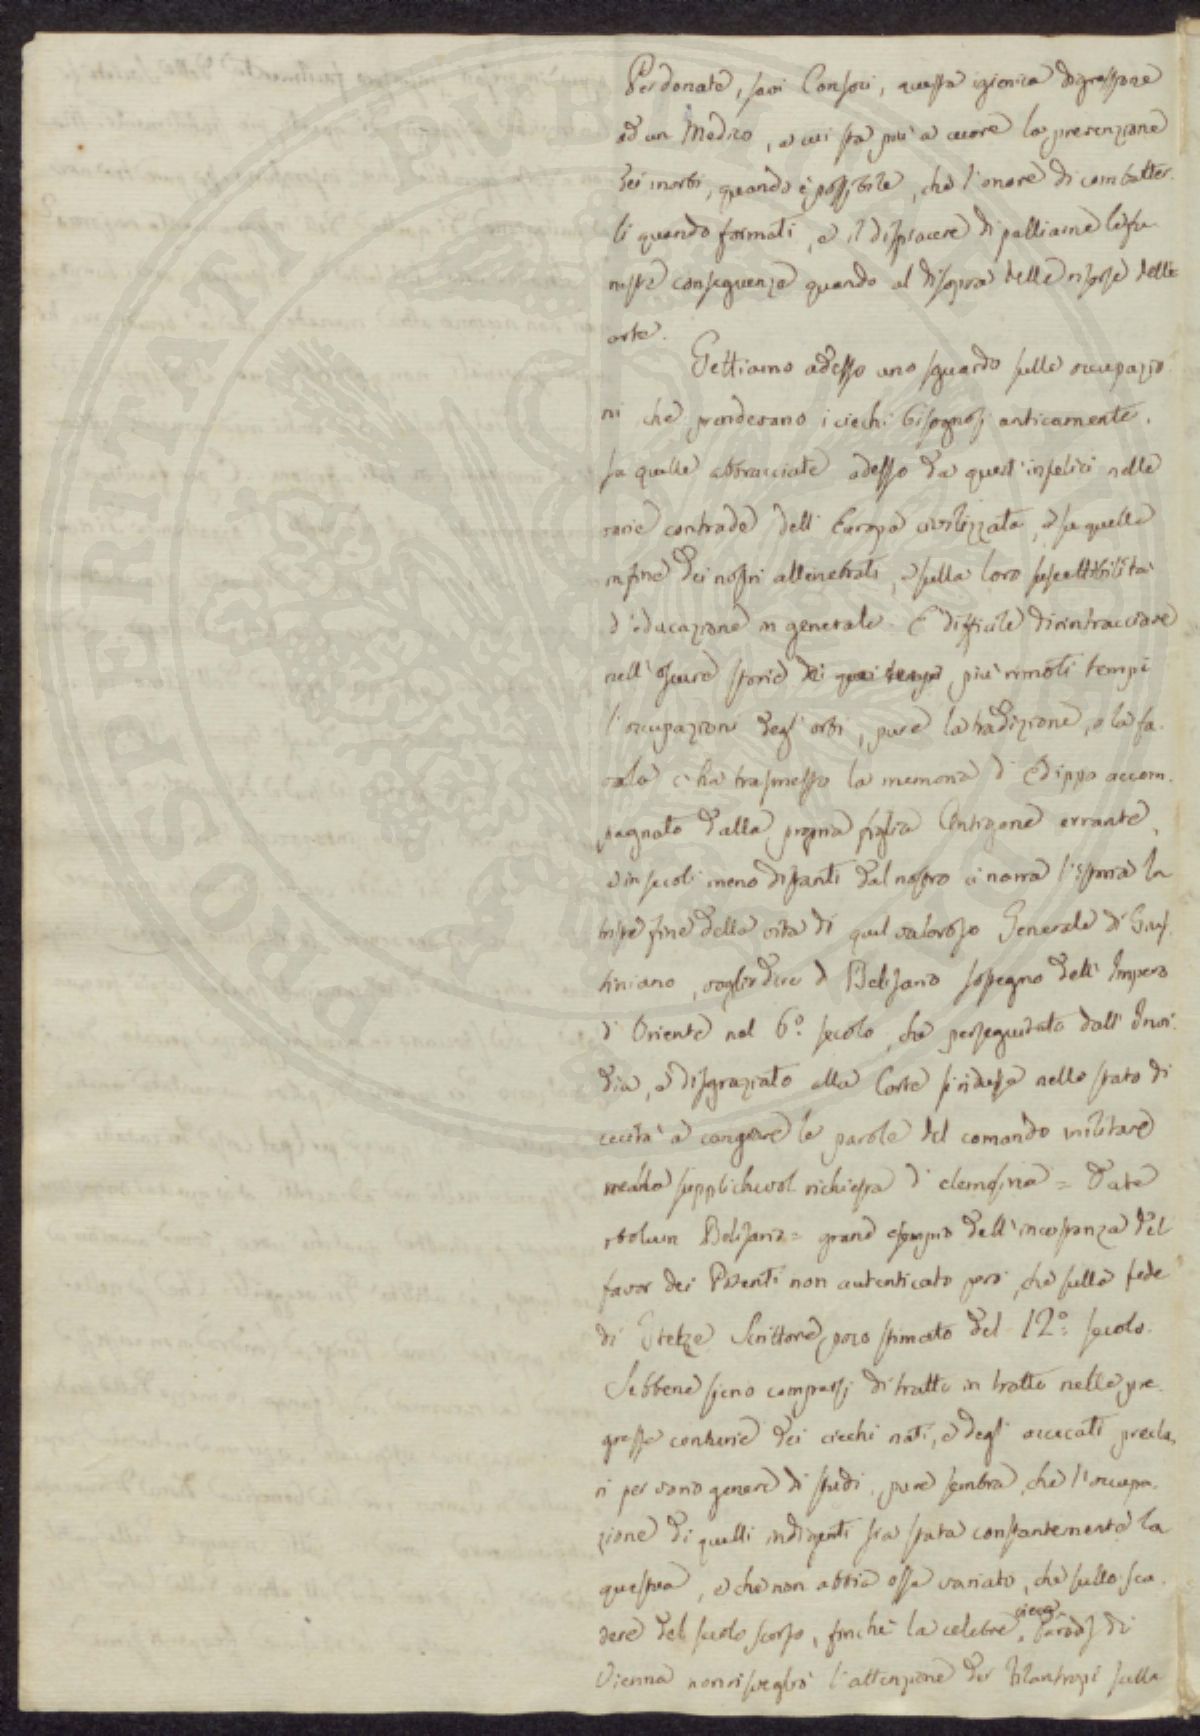 Perdonate, savi Consoci, questa igienica digressione
ad un Medico, a cui sta più a cuore la prevenzione
dei morbi, quando è possibile, che l'onore di combatter-
li quando formati, e il dispiacere di palliarne le fu-
neste conseguenze quando al disopra delle risorse dell'
arte.
Gettiamo adesso uno sguardo sulle occupazio-
ni che prendevano i ciechi bisognosi anticamente,
su quelle abbracciate adesso da quest'infelici nelle
varie contrade dell'Europa civilizzata, e su quelle
infine dei nostri allucinati, e sulla loro suscettibilità
d'educazione in generale. È difficile di rintracciare
nell'oscure storie dei quei tempi più rimoti tempi
l'occupazioni degl'orbi, pure la tradizione, e la fa-
vola ci ha trasmesso la memoria d'Edippo accom-
pagnato dalla propria figlia Antigone errante,
e in secoli meno distanti dal nostro ci narra l'istoria la
triste fine della vita di quel valoroso Generale di Gius-
tiniano, voglio dire di Belisario sostegno dell'Impero
d'Oriente nel 6.º secolo, che perseguitato dall'Invi-
dia, e disgraziato alla Corte si ridusse nello stato di
cecità a cangiare le parole del comando militare
nella supplichevol richiesta d'elemosina = Date
obolum Belisario = grand esempio dell'incostanza del
favor dei Potenti non autenticato però, che sulla fede
di Tzetze Scrittore poco stimato del 12.º secolo.
Sebbene sieno comparsi di tratto in tratto nelle pre-
gresse centurie dei ciechi nati, e degl'acciecati precla-
ri per vario genere di studi, pure sembra, che l'occupa-
zione di quelli indigenti sia stata constantemente la
questua, e che non abbia essa variato, che sullo sca-
dere del secolo scorso, finché la celebre cieca Paradis di
Vienna non risvegliò l'attenzione dei filantropi sulla